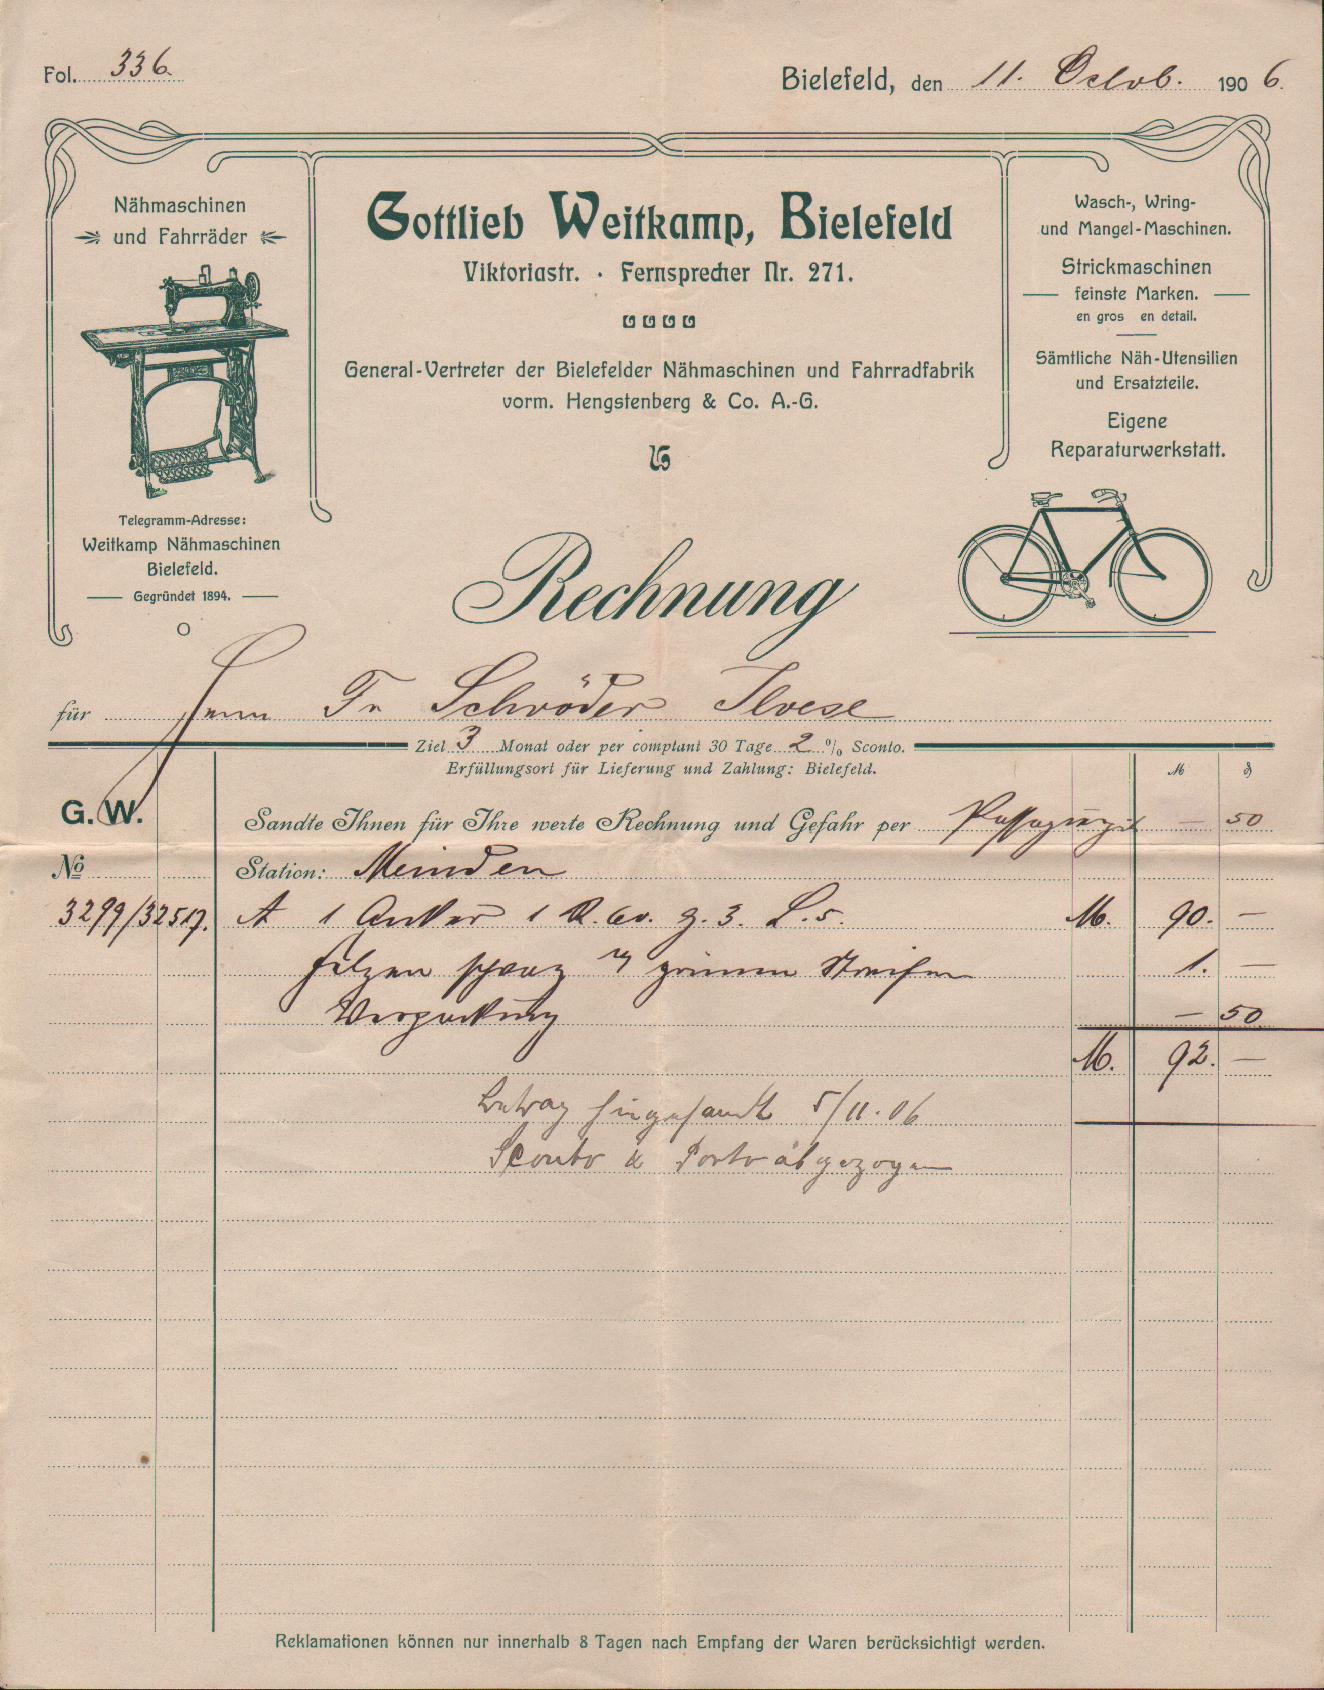 Fol. 336.
Bielefeld, den 11. Octob. 1906.
Nähmaschinen
und Fahrräder
Telegramm-Adresse:
Weitkamp Nähmaschinen
Bielefeld.
Gegründet 1894.
Gottlieb Weitkamp, Bielefeld
Viktoriastr. · Fernsprecher Nr. 271.
General-Vertreter der Bielefelder Nähmaschinen und Fahrradfabrik
vorm. Hengstenberg & Co. A.-G.
Wasch-, Wring-
und Mangel-Maschinen.
Strickmaschinen
feinste Marken.
en gros en detail.
Sämtliche Näh-Utensilien
und Ersatzteile.
Eigene
Reparaturwerkstatt.
Rechnung
für Herrn Fr Schröder Ilvese
Ziel 3 Monat oder per comptant 30 Tage 2 % Sconto.
Erfüllungsort für Lieferung und Zahlung: Bielefeld.
M ₰
G. W. Sandte Ihnen für Ihre werte Rechnung und Gefahr per — 50
No Station: Meinden
3299/32517. A 1 Anker 1 R. g. 3. L. 5. M. 90. —
schwarz grünen Streifen 1. —
Verpackung — 50
M. 92. —
Betrag eingesandt 5/11.06
Sconto & Porto abgezogen
Reklamationen können nur innerhalb 8 Tagen nach Empfang der Waren berücksichtigt werden.